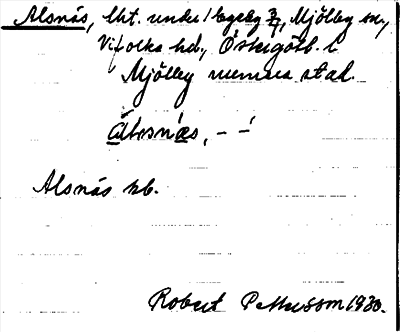 Alsnäs, lht. under Hageby 3/7, Mjölby sn,
Vifolka hd, Östergötl. l
Mjölby numera stad.
Älvsnäs, – –́
Alsnäs kb.
Robert Pettersson 1930.